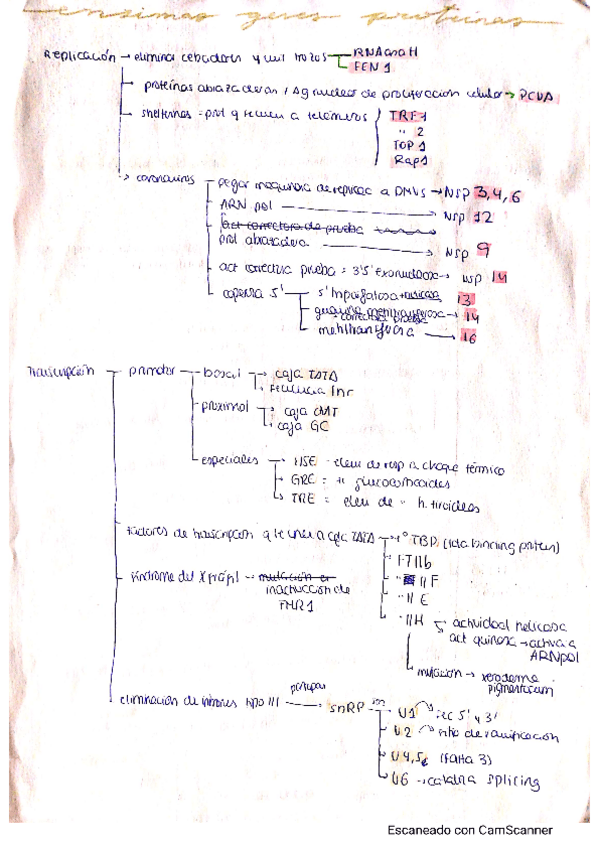 enzimas genes proteínas
Replicación → elimina cebadores y une trozos RNAasa H
FEN 1
proteínas abrazaderas / Ag nuclear de proliferación celular → PCNA
shelterinas = prot q se unen a telómeros TRF1
" 2
TOP 1
Rap1
coronavirus pegar maquinaria de replicac a DMVs → Nsp 3, 4, 6
ARN pol → Nsp 12
act correctora de prueba
prot abrazadera → Nsp 9
act correctora prueba = 3'5' exonucleasa → nsp 14
caperuza 5' 5' trifosfatasa + helicasa 13
guanina metiltransferasa → 14
+ correctora prueba
metiltransferasa → 16
Transcripción promotor basal → caja TATA
secuencia Inr
proximal → caja CAAT
caja GC
especiales → HSE - elem de resp a choque térmico
GRE = " glucocorticoides
TRE = elem de " h. tiroideas
factores de transcripción q se unen a caja TATA → 1º TBP (tata binding protein)
FTIIb
" IIF
" II E
" IIH actividad helicasa
act quinasa → activa a ARNpol
mutación → xeroderma pigmenticum
síndrome del X frágil - mutación en
inactivación de
FMR1
eliminación de intrones tipo III participan snRP son U1 rec 5' y 3'
U2 sitio de ramificación
U4,5 (falta 3)
U6 → cataliza splicing
Escaneado con CamScanner